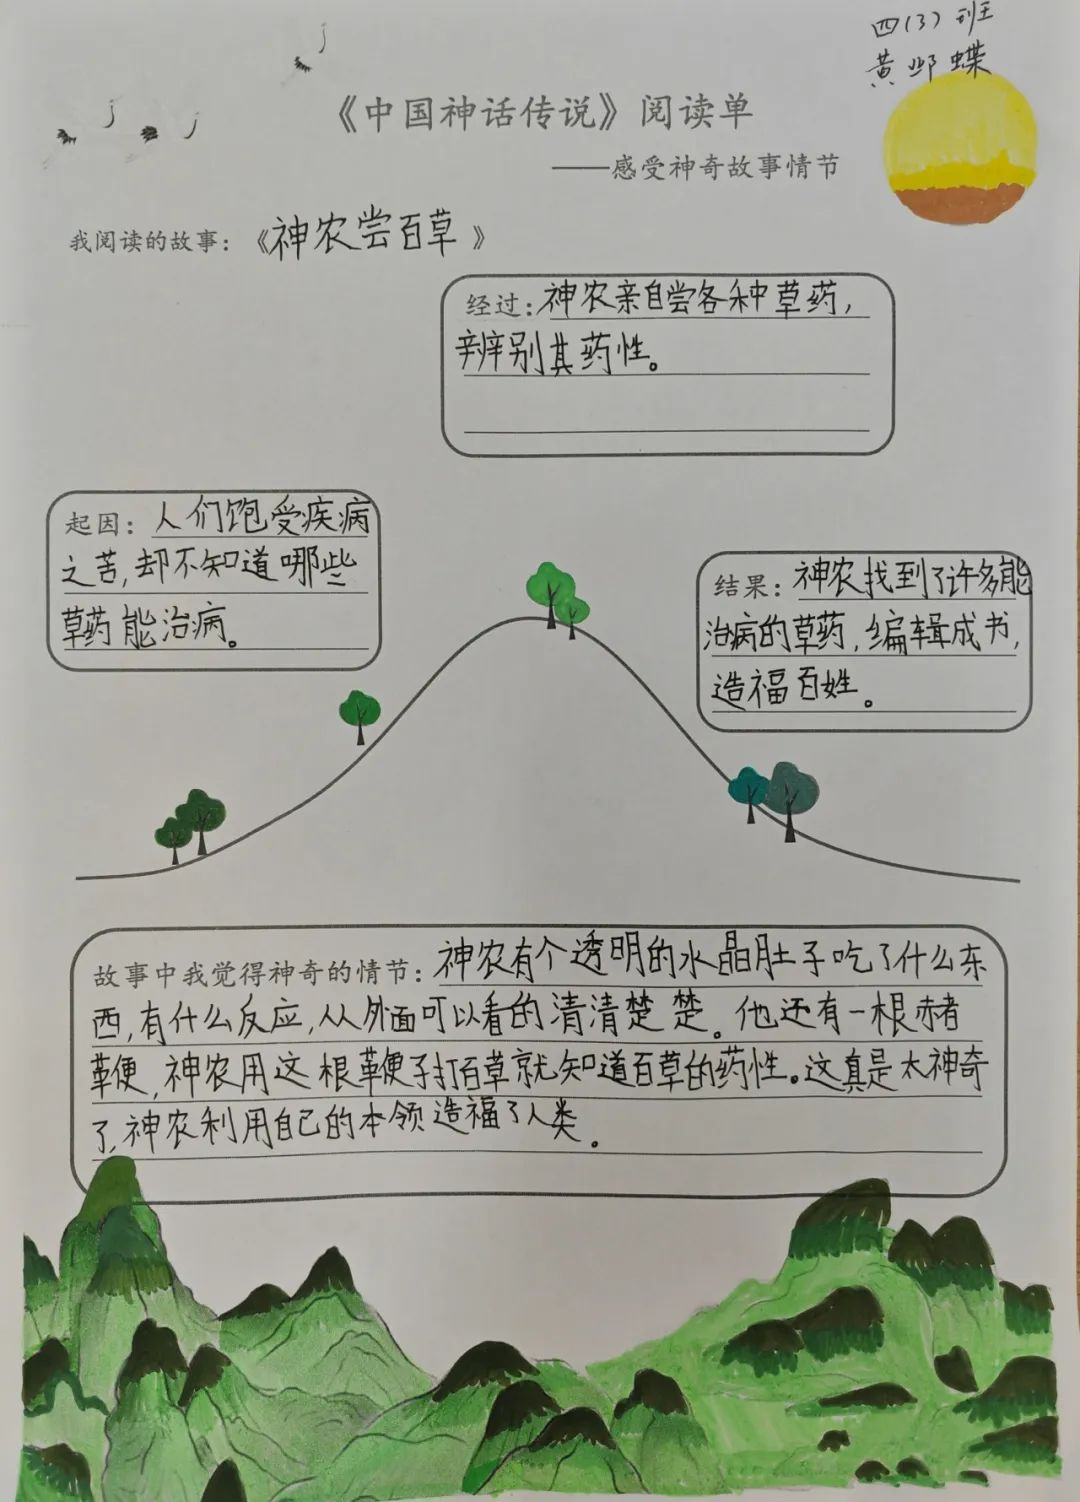 四(3)班
黄邺蝶
《中国神话传说》阅读单
——感受神奇故事情节
我阅读的故事:《神农尝百草》
经过:神农亲自尝各种草药,
辨别其药性。
起因:人们饱受疾病
之苦,却不知道哪些
草药能治病。
结果:神农找到了许多能
治病的草药,编辑成书,
造福百姓。
故事中我觉得神奇的情节:神农有个透明的水晶肚子吃了什么东
西,有什么反应,从外面可以看的清清楚楚。他还有一根赭
鞭,神农用这根鞭子打百草就知道百草的药性。这真是太神奇
了,神农利用自己的本领造福了人类。